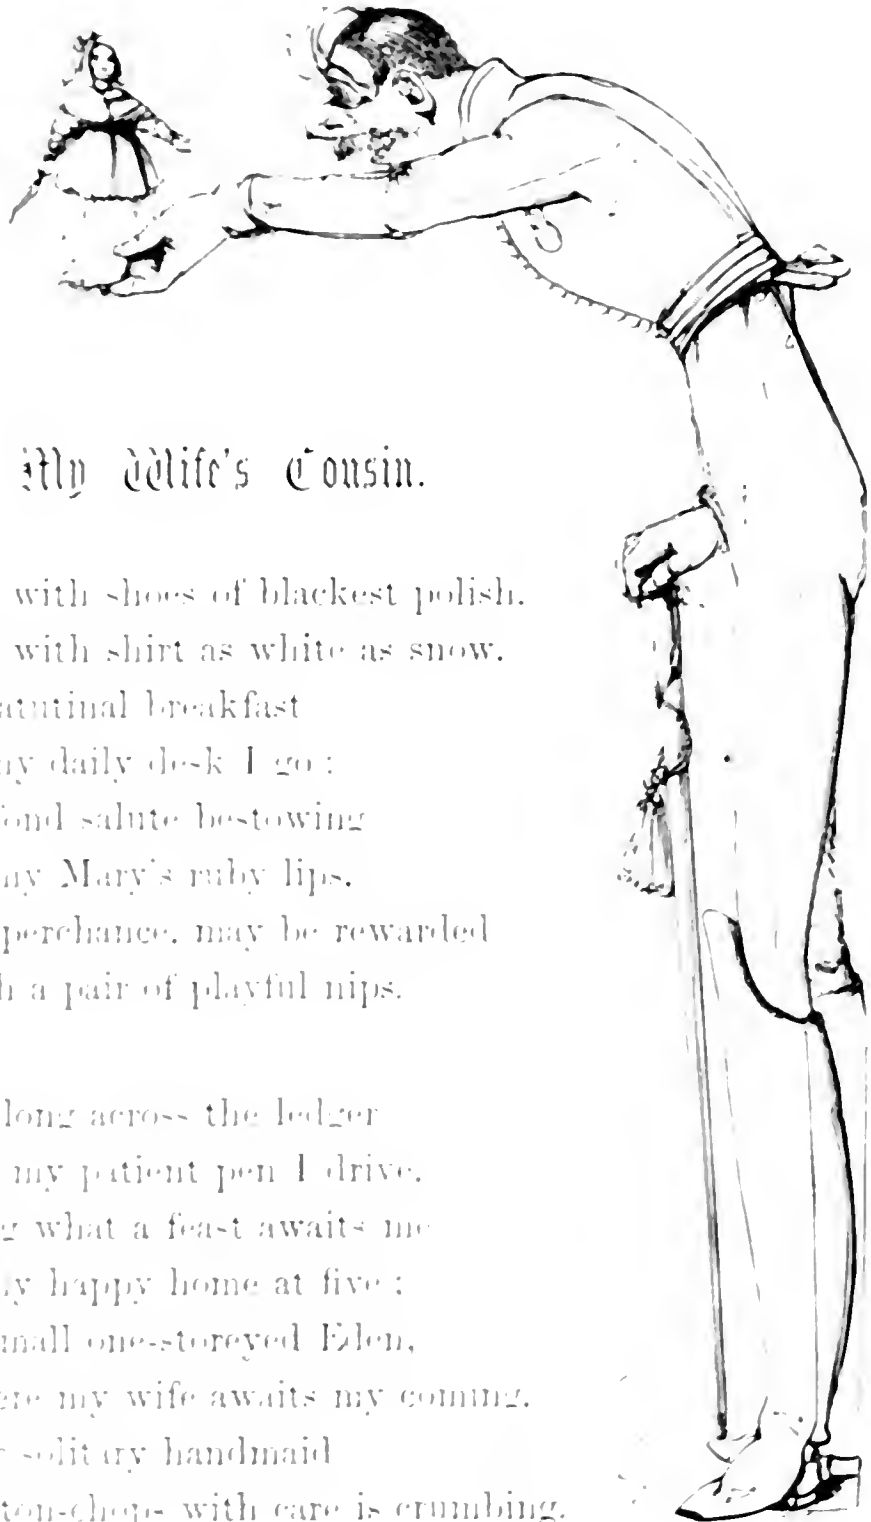 My Wife's Cousin.
with shoes of blackest polish.
with shirt as white as snow.
atutinal breakfast
my daily desk I go :
fond salute bestowing
my Mary's ruby lips.
perchance, may be rewarded
h a pair of playful nips.
long across the ledger
my patient pen I drive.
g what a feast awaits me
happy home at five :
mall one-storeyed Eden,
ere my wife awaits my coming.
solitary handmaid
ton-chops with care is crumbing.